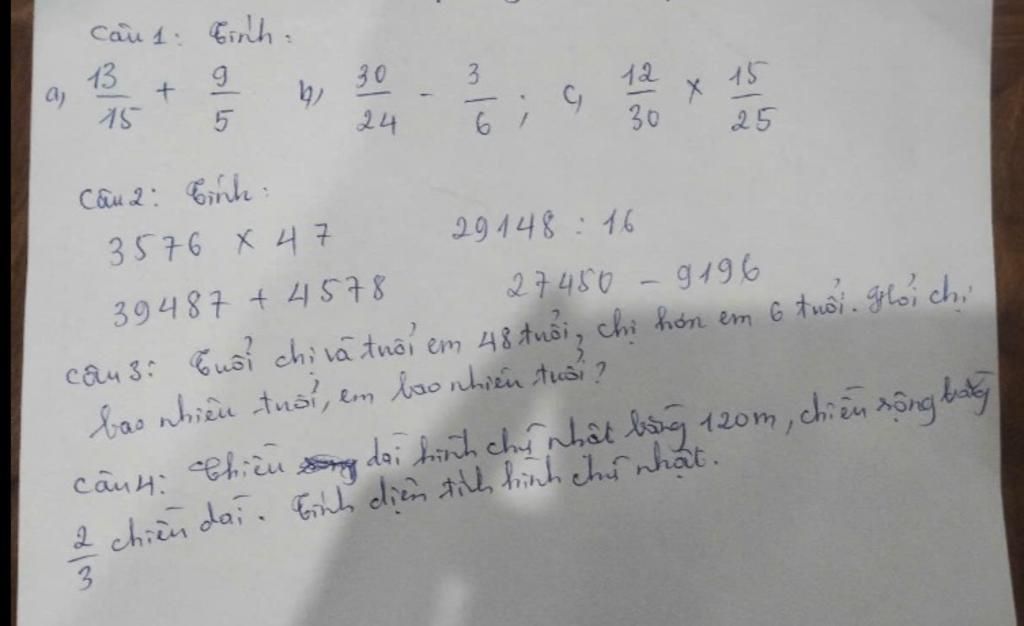 Câu 1: Tính:
a, 13/15 + 9/5 b, 30/24 - 3/6 ; c, 12/30 x 15/25
Câu 2: Tính:
3576 x 47 29148 : 16
39487 + 4578 27450 - 9196
Câu 3: Tuổi chị và tuổi em 48 tuổi, chị hơn em 6 tuổi. Hỏi chị
bao nhiêu tuổi, em bao nhiêu tuổi?
Câu 4: Chiều dài hình chữ nhật bằng 120m, chiều rộng bằng
2/3 chiều dài. Tính diện tích hình chữ nhật.